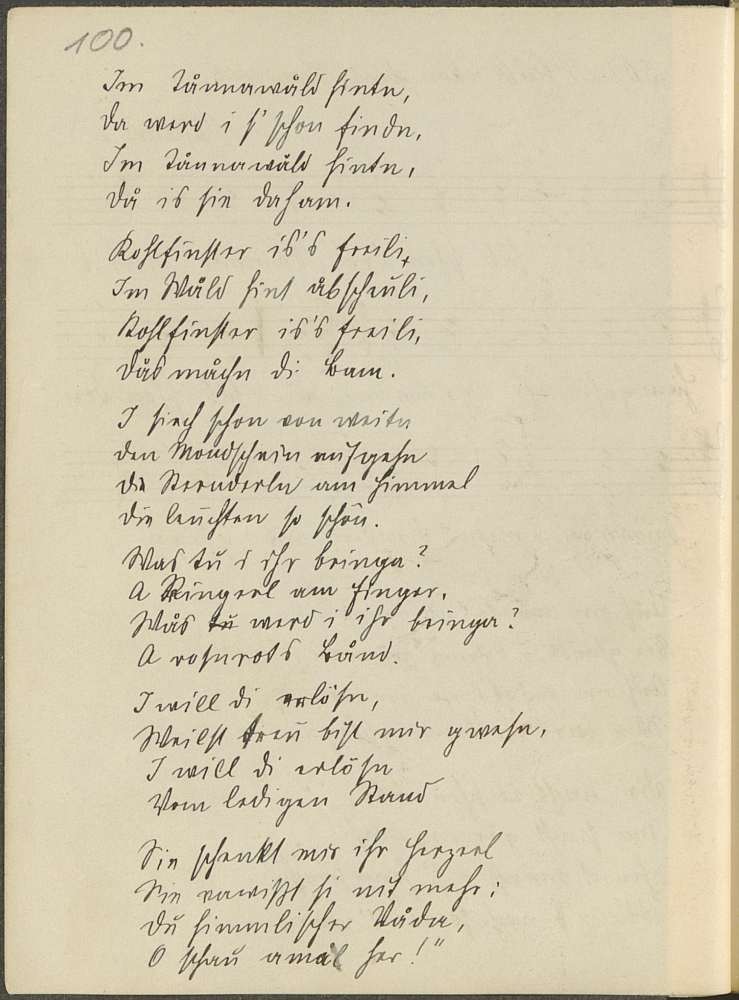 100.
Im Tånnawåld hintn,
Da werd i s' schon findn,
Im Tånnawåld hintn,
Då is sie daham.
Kohlfinster is's freili,
Im Wåld hint åbscheuli,
Kohlfinster is's freili,
Dås måchn di Bam.
I siech schon von weitn
den Mondschein aufgehn
di Sternderln am Himmel
die leuchten so schön.
Was tu i ihr bringa?
A Ringerl am Finger.
Wås tu werd i ihr bringa?
A rosnrots Bånd.
I will di erlösn,
Weilst treu bist mir gwesn,
I will di erlösn
Vom ledigen Stand
Sie schenkt mir ihr Herzerl
Sie si nit mehr:
Du himmlischer Våda,
O schau amål her!"